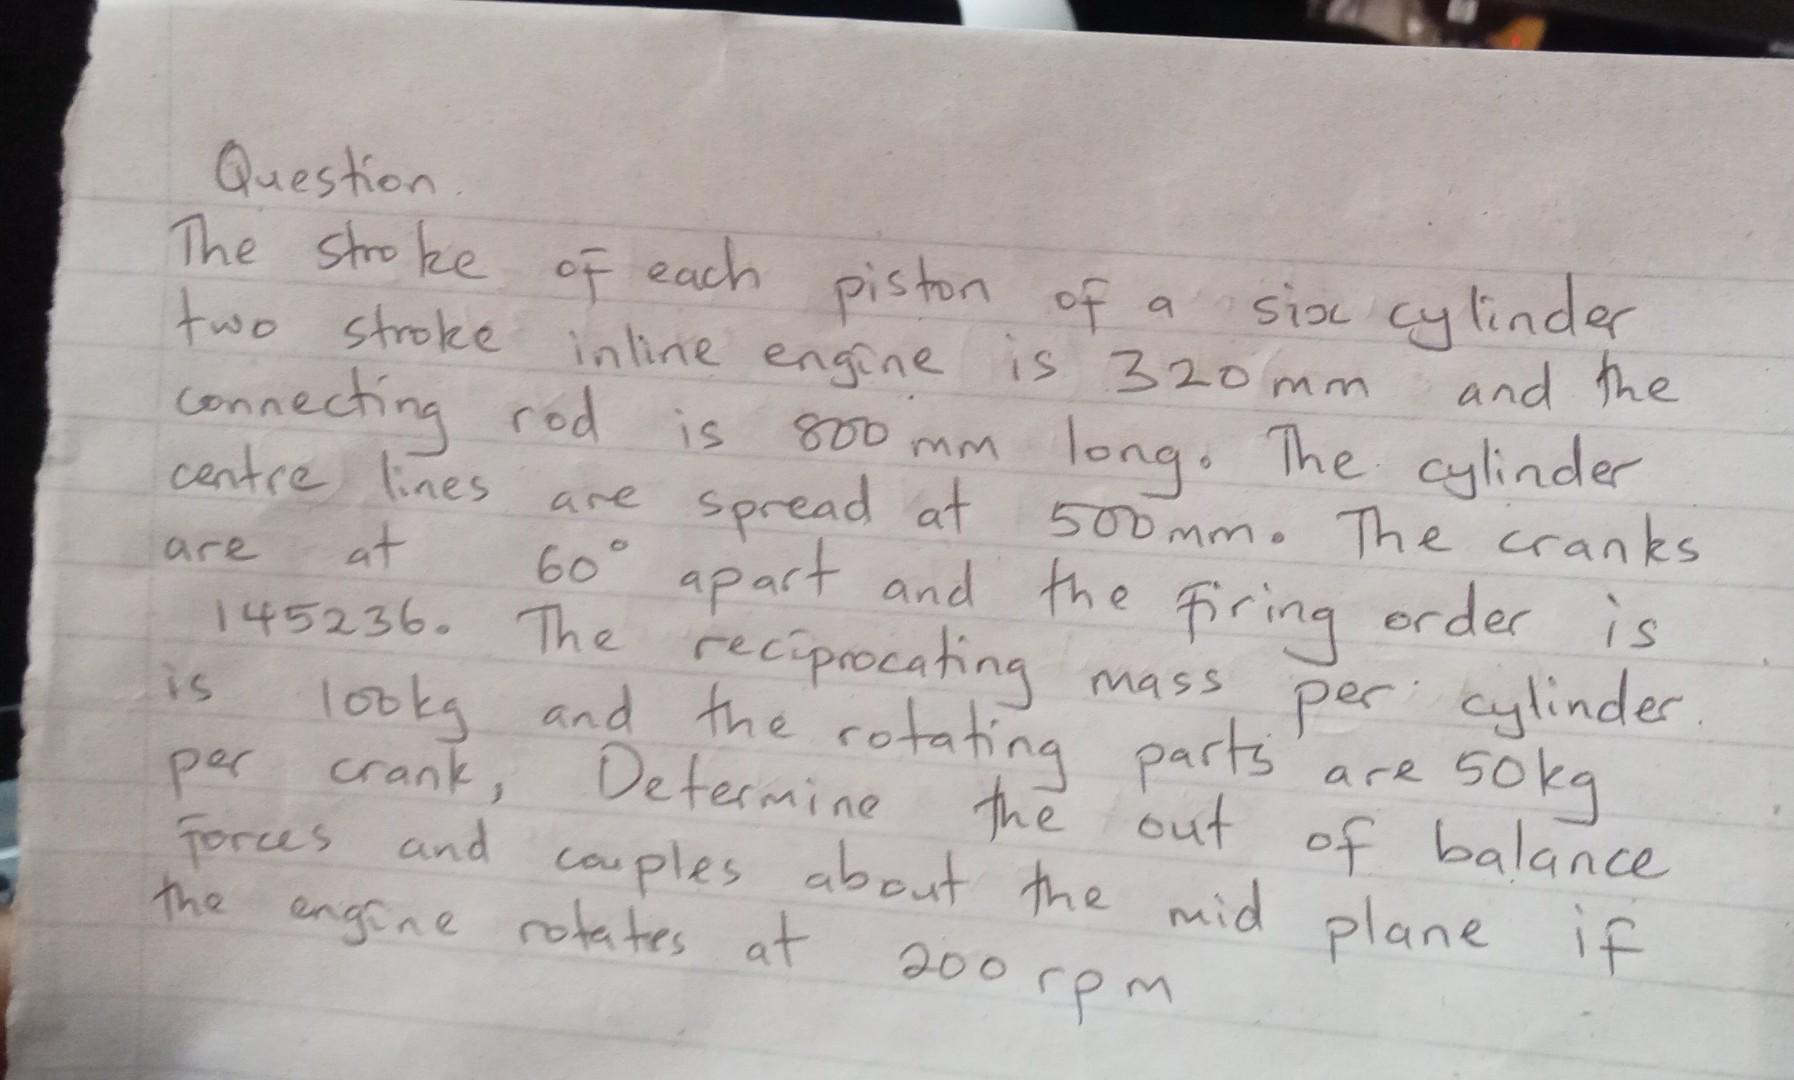 Question.
The stroke of each piston of a six cylinder
two stroke inline engine is 320mm and the
connecting rod is 800mm long. The cylinder
centre lines are spread at 500mm. The cranks
are at 60° apart and the firing order is
145236. The reciprocating mass per cylinder
is 100kg and the rotating parts are 50kg
per crank, Determine the out of balance
forces and couples about the mid plane if
the engine rotates at 200 rpm